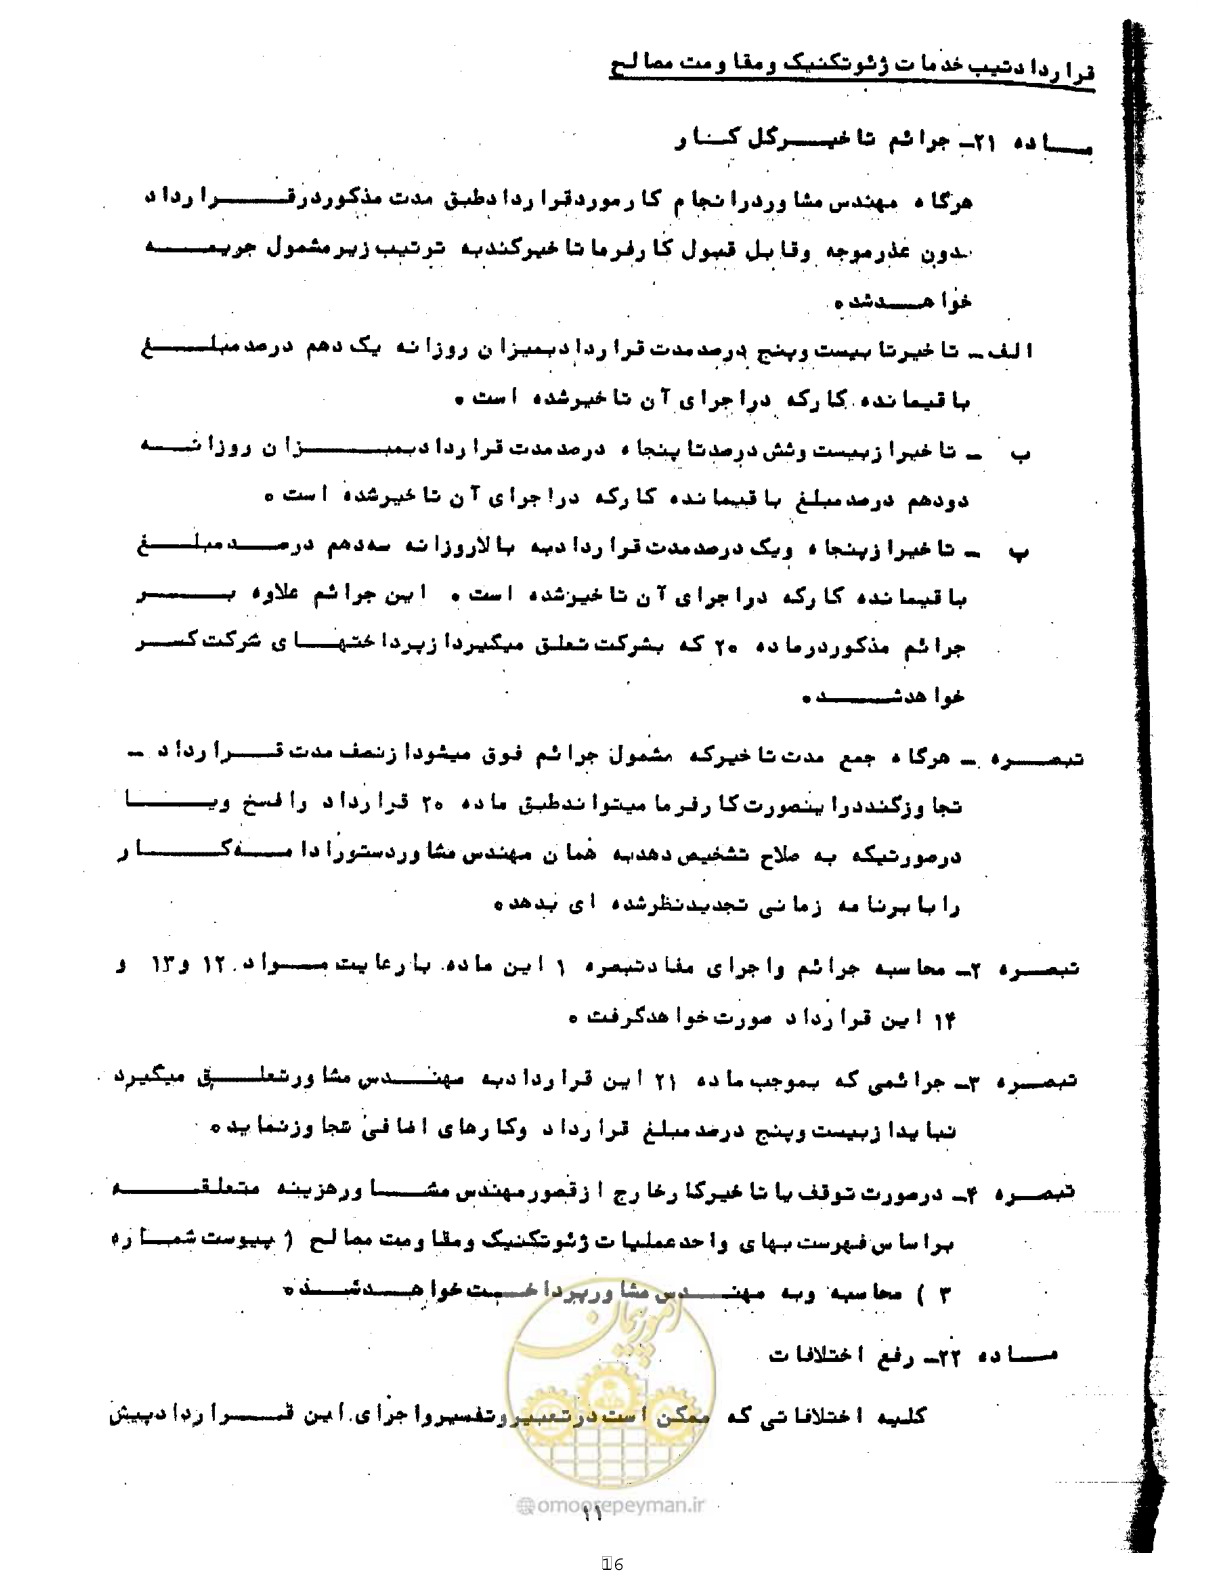 قرارداد تیپ خدمات ژئوتکنیک و مقاومت مصالح
مــاده ۲۱ـ جرائم تاخیــرکل کـنـار
هرگاه مهندس مشاور در انجام کار مورد قرارداد طبق مدت مذکور در قــرارداد
بدون عذرموجه وقابل قبول کارفرما تاخیرکند به ترتیب زیر مشمول جریمــه
خواهــدشد ۰
الف ـ تاخیر تا بیست وپنج درصد مدت قرارداد بمیزان روزانه یک دهم درصد مبلــغ
باقیمانده کارکه در اجرای آن تاخیرشده است ۰
ب ـ تاخیر از بیست وشش درصد تا پنجاه درصد مدت قرارداد بمیــزان روزانــه
دودهم درصد مبلغ باقیمانده کارکه در اجرای آن تاخیرشده است ۰
پ ـ تاخیر از پنجاه ویک درصد مدت قرارداد به بالا روزانه سه دهم درصــد مبلــغ
باقیمانده کارکه در اجرای آن تاخیرشده است ۰ این جرائم علاوه بــر
جرائم مذکور در ماده ۲۰ که بشرکت تعلق میگیرد از پرداختهــای شرکت کســر
خواهدشــد ۰
تبصــره ـ هرگاه جمع مدت تاخیرکه مشمول جرائم فوق میشود از نصف مدت قــرارداد ـ
تجاوزکند در اینصورت کارفرما میتواند طبق ماده ۲۰ قرارداد را فسخ ویــا
درصورتیکه به صلاح تشخیص دهد به همان مهندس مشاور دستور ادامــه کــار
را با برنامه زمانی تجدیدنظرشده ای بدهد ۰
تبصــره ۲ـ محاسبه جرائم واجرای مفاد تبصره ۱ این ماده با رعایت مــواد ۱۲ و ۱۳ و
۱۴ این قرارداد صورت خواهدگرفت ۰
تبصــره ۳ـ جرائمی که بموجب ماده ۲۱ این قرارداد به مهنــدس مشاورتعلــق میگیرد
نباید از بیست وپنج درصد مبلغ قرارداد وکارهای اضافی تجاوزنماید ۰
تبصــره ۴ـ درصورت توقف یا تاخیرکار خارج از قصور مهندس مشــاور هزینه متعلقــه
براساس فهرست بهای واحد عملیات ژئوتکنیک ومقاومت مصالح ( پیوست شمــاره
۳ ) محاسبه وبه مهنــدس مشاور پرداخــت خواهــدشــد ۰
مــاده ۲۲ـ رفع اختلافات
کلیه اختلافاتی که ممکن است در تعبیر وتفسیر واجرای این قــرارداد پیش
امور پیمان
@omoorepeyman.ir
۱۱
16